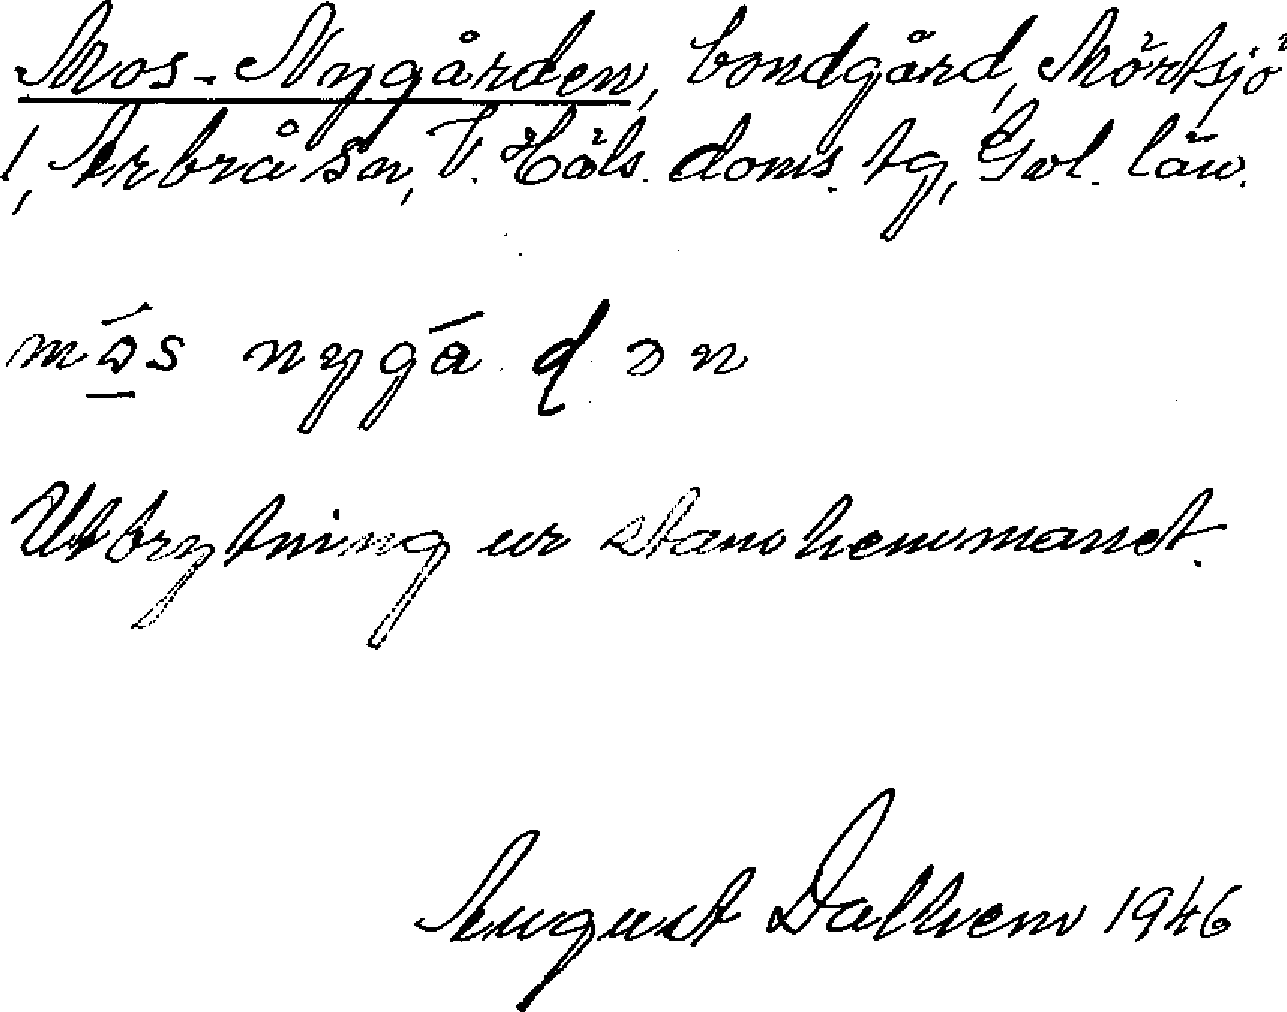 Mos-Nygården, bondgård, Mörtsjö
1, Arbrå sn, V. Häls. doms. tg, Gvl. län.
mǻs nygá ɖ ən
Utbrytning ur stamhemmanet.
August Dalhem 1946